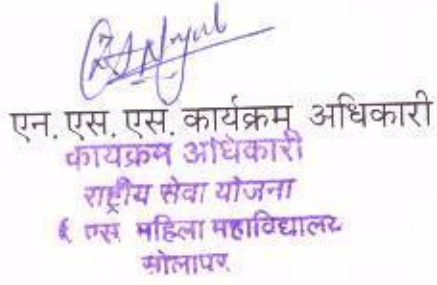 एन. एस. एस. कार्यक्रम अधिकारी
कार्यक्रम अधिकारी
राष्ट्रीय सेवा योजना
एस. महिला महाविद्यालय
सोलापूर